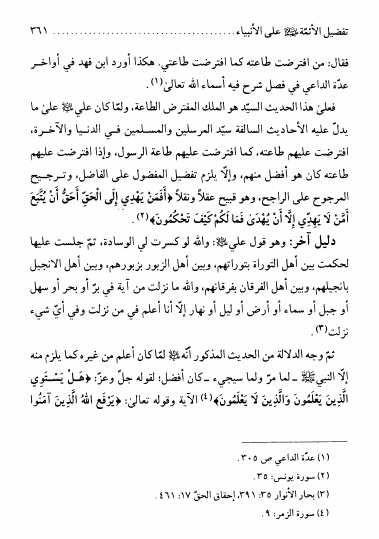 تفضيل الأئمّة ﷺ على الأنبياء .......................................... ٣٦١
فقال: من افترضت طاعته كما افترضت طاعتي. هكذا أورد ابن فهد في أواخر
عدّة الداعي في فصل شرح فيه أسماء الله تعالى(١).
فعلى هذا الحديث السيّد هو الملك المفترض الطاعة، ولمّا كان علي ﷺ على ما
يدلّ عليه الأحاديث السالفة سيّد المرسلين والمسلمين في الدنيا والآخرة،
افترضت عليهم طاعته، كما افترضت عليهم طاعة الرسول، وإذا افترضت عليهم
طاعته كان هو أفضل منهم، وإلّا يلزم تفضيل المفضول على الفاضل، وترجيح
المرجوح على الراجح، وهو قبيح عقلاً ونقلاً ﴿أَفَمَنْ يَهْدِي إِلَى الْحَقِّ أَحَقُّ أَنْ يُتَّبَعَ
أَمَّنْ لَا يَهِدِّي إِلَّا أَنْ يُهْدَىٰ فَمَا لَكُمْ كَيْفَ تَحْكُمُونَ﴾(٢).
دليل آخر: وهو قول علي ﷺ: والله لو كسرت لي الوسادة، ثمّ جلست عليها
لحكمت بين أهل التوراة بتوراتهم، وبين أهل الزبور بزبورهم، وبين أهل الانجيل
بانجيلهم، وبين أهل الفرقان بفرقانهم، والله ما نزلت من آية في برّ أو بحر أو سهل
أو جبل أو سماء أو أرض أو ليل أو نهار إلّا أنا أعلم في من نزلت وفي أيّ شيء
نزلت(٣).
ثمّ وجه الدلالة من الحديث المذكور أنّه ﷺ لمّا كان أعلم من غيره كما يلزم منه
إلّا النبي ﷺ ـ لما مرّ ولما سيجيء ـ كان أفضل؛ لقوله جلّ وعزّ: ﴿هَلْ يَسْتَوِي
الَّذِينَ يَعْلَمُونَ وَالَّذِينَ لَا يَعْلَمُونَ﴾(٤) الآية وقوله تعالى: ﴿يَرْفَعِ اللهُ الَّذِينَ آمَنُوا
(١) عدّة الداعي ص ٣٠٥.
(٢) سورة يونس: ٣٥.
(٣) بحار الأنوار ٣٥: ٣٩١، إحقاق الحقّ ١٧: ٤٦١.
(٤) سورة الزمر: ٩.